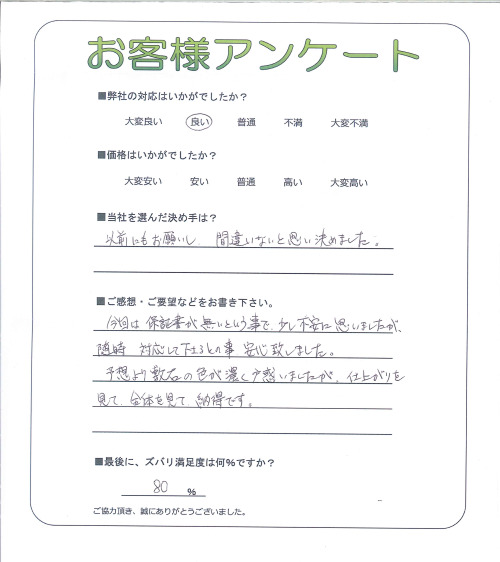 お客様アンケート
■弊社の対応はいかがでしたか?
大変良い 良い 普通 不満 大変不満
■価格はいかがでしたか?
大変安い 安い 普通 高い 大変高い
■当社を選んだ決め手は?
以前にもお願いし 間違いないと思い決めました。
■ご感想・ご要望などをお書き下さい。
今回は保証書が無いという事で、少し不安に思いましたが、
随時 対応して下さるとの事 安心致しました。
予想より敷石の色が濃く戸惑いましたが、仕上がりを
見て、全体を見て、納得です。
■最後に、ズバリ満足度は何%ですか?
80 %
ご協力頂き、誠にありがとうございました。